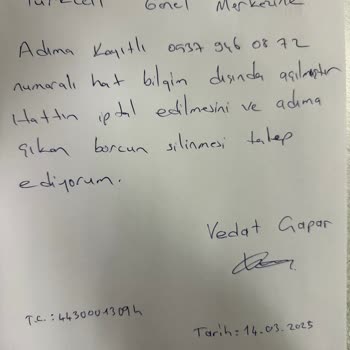 Turkcell Genel Merkezine
Adıma Kayıtlı 0537 946 08 72
numaralı hat bilgim dışında açılmıştır
Hattın iptal edilmesini ve adıma
çıkan borcun silinmesi talep
ediyorum.
Vedat Çapar
T.C.: 44300013094
Tarih: 14.03.2025